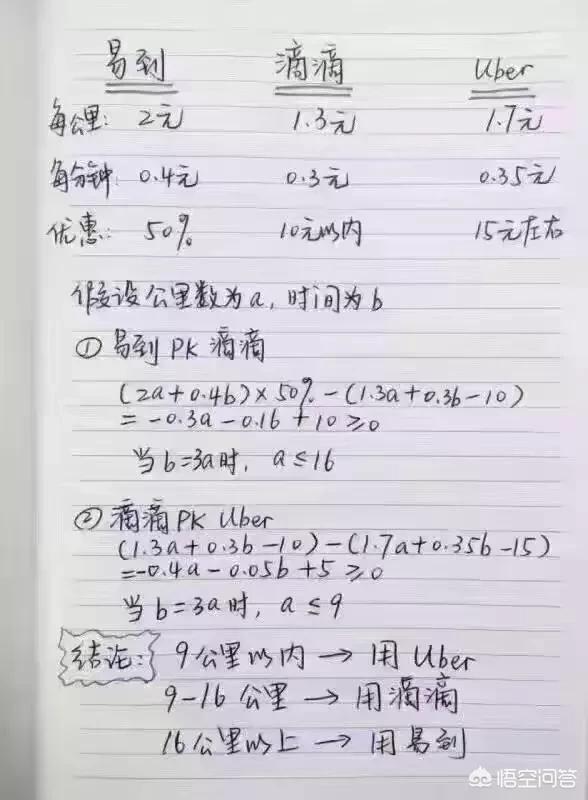 易到 滴滴 Uber
每公里: 2元 1.3元 1.7元
每分钟: 0.4元 0.3元 0.35元
优惠: 50% 10元以内 15元左右
假设公里数为a,时间为b
① 易到 PK 滴滴
(2a+0.4b)×50%-(1.3a+0.3b-10)
=-0.3a-0.1b+10≥0
当b=3a时, a≤16
② 滴滴 PK Uber
(1.3a+0.3b-10)-(1.7a+0.35b-15)
=-0.4a-0.05b+5≥0
当b=3a时, a≤9
结论: 9公里以内→用Uber
9-16公里→用滴滴
16公里以上→用易到
悟空问答